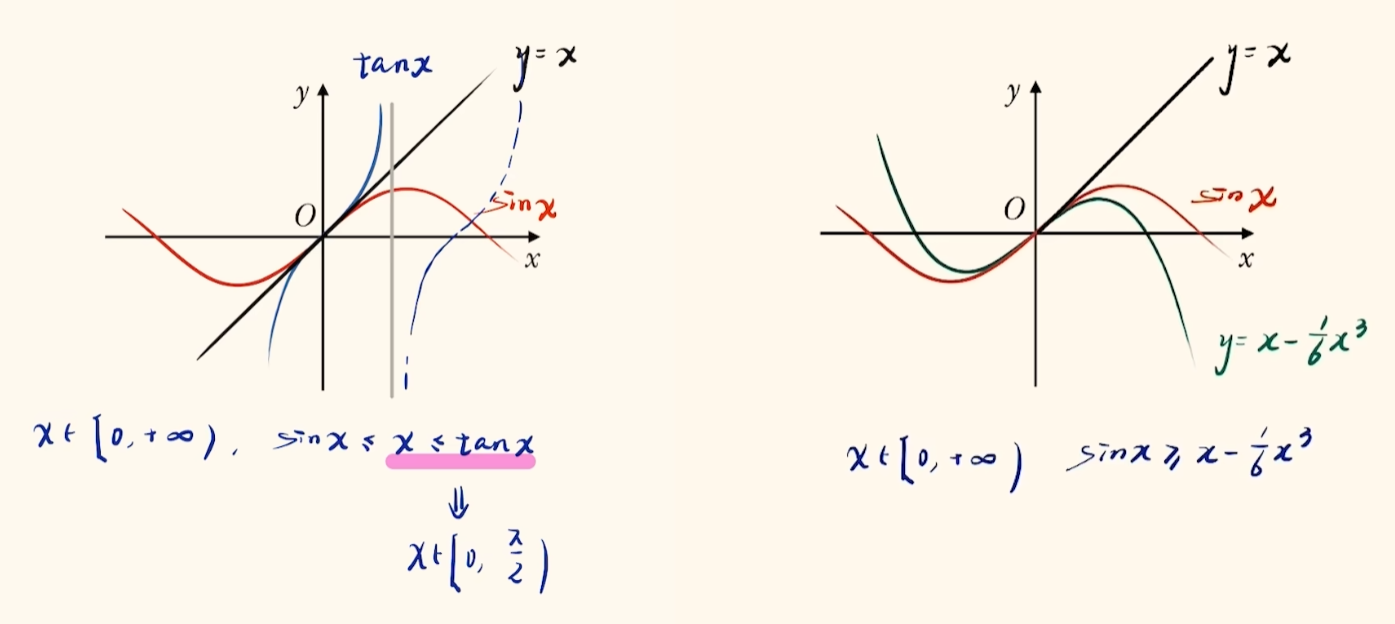 tanx
y = x
y
O
sinx
x
x ∈ [0, +∞), sinx ≤ x ≤ tanx
⇓
x ∈ [0, π/2)
y = x
y
O
sinx
x
y = x - 1/6 x³
x ∈ [0, +∞) sinx ≥ x - 1/6 x³